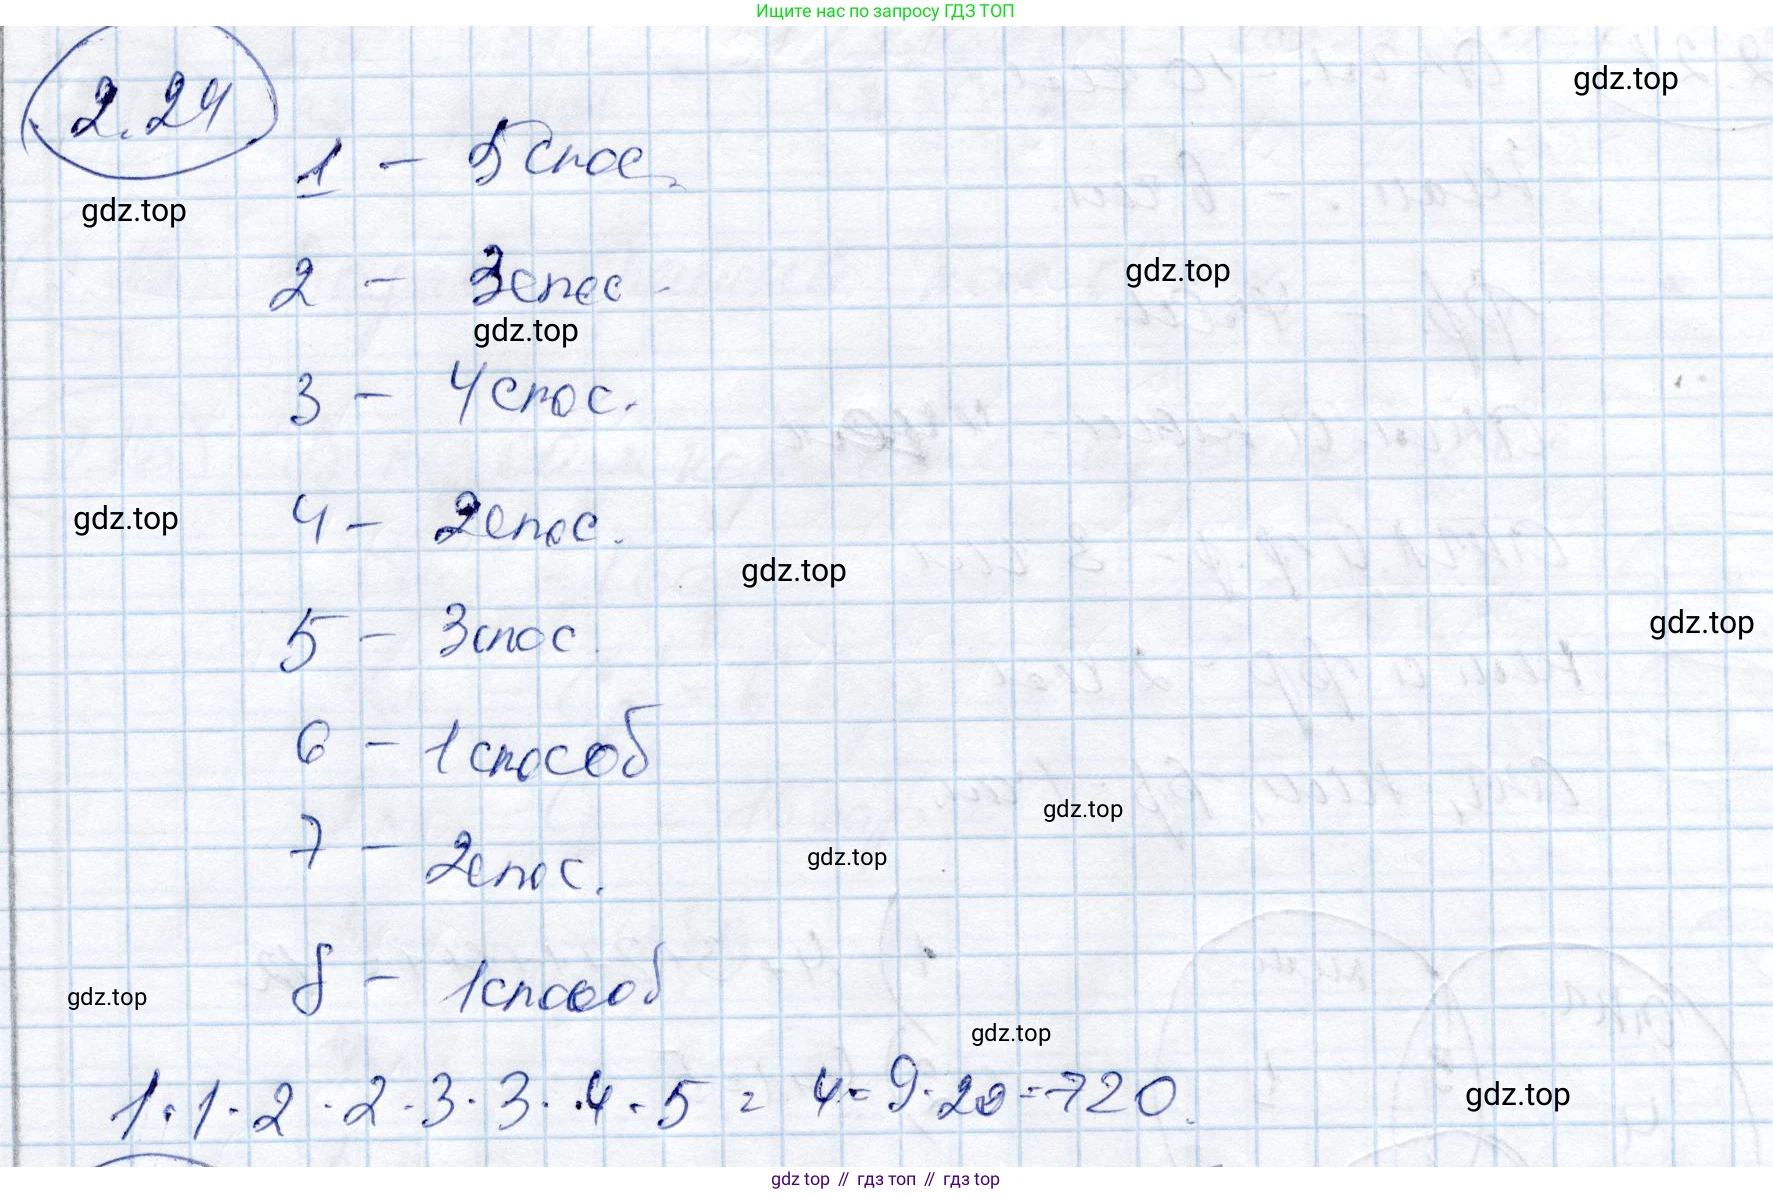 Ищите нас по запросу ГДЗ ТОП
2.24
gdz.top
1 - 5 спос.
gdz.top
2 - 3 спос.
gdz.top
gdz.top
3 - 4 спос.
4 - 2 спос.
gdz.top
gdz.top
5 - 3 спос.
gdz.top
6 - 1 способ
gdz.top
7 - 2 спос.
gdz.top
8 - 1 способ
gdz.top
gdz.top
1 · 1 · 2 · 2 · 3 · 3 · 4 · 5 = 4 · 9 · 20 = 720.
gdz.top
gdz top // гдз топ // гдз top